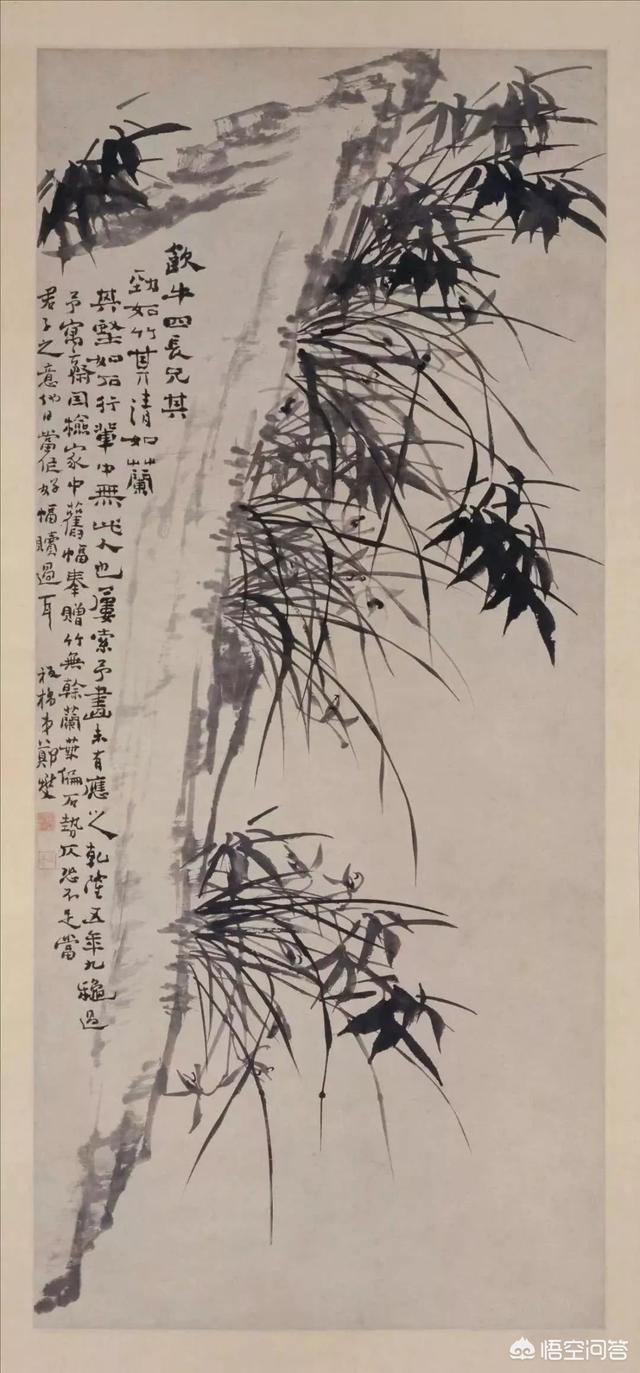 飲牛四長兄其
勁如竹其清如蘭
其堅如石行輩中無此人也屢索予畫未有應之乾隆五年九龝過
予寓齋因撿家中舊幅奉贈竹無榦蘭葉偏石勢仄恐不足當
君子之意他日當作好幅贖過耳 板橋弟鄭燮
悟空问答